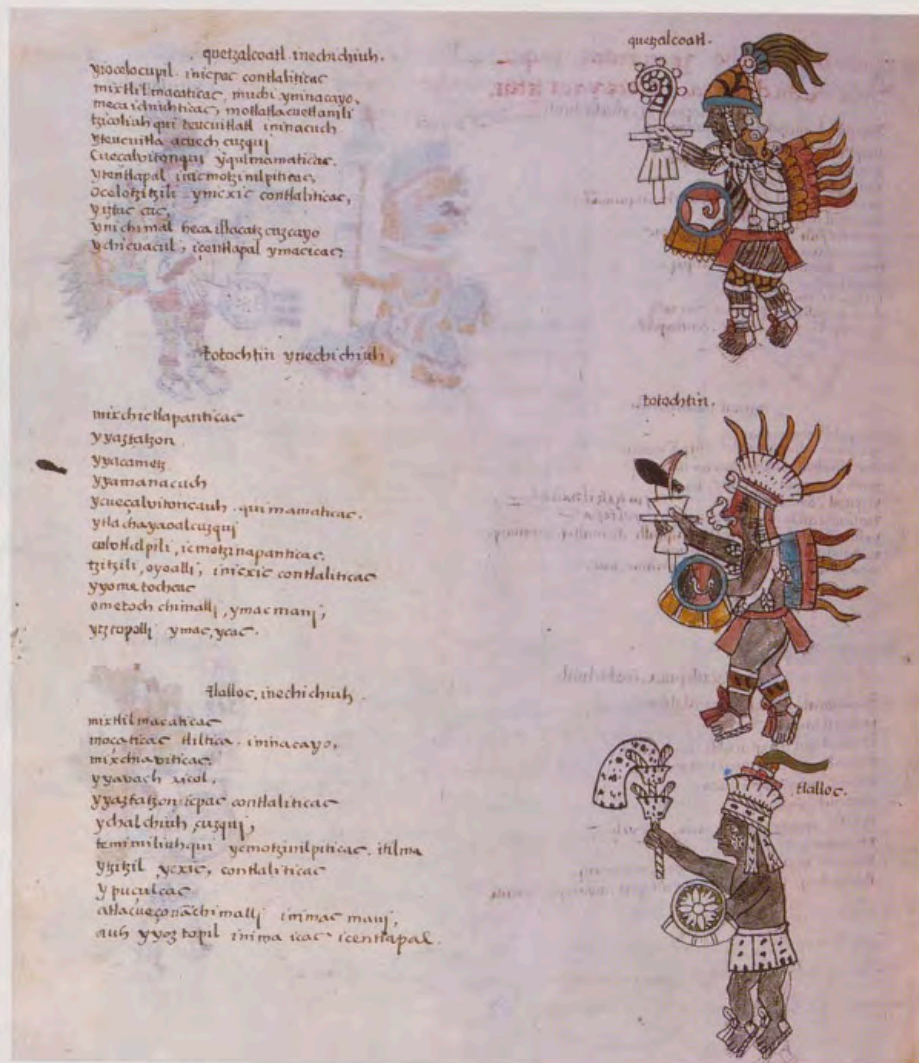 quetzalcoatl. inechichiuh.
yiocelocupil. inicpac contlaliticac
mixtlilmacaticac, muchi yninacayo,
mecaichiuhticac, motlatlacuetlanili
tzicoliuhqui teucuitlatl ininacuch
yteucuitla acuech cuzquj
Cuecalvitonquj yquimamaticac.
ytentlapal inicmotzinilpiticac,
ocelotzitzili ycxic contlaliticac,
yiztac cac,
ynichimal hecaillacatzcuzcayo
ychicuacul, icentlapal ymacicac,
totochtin ynechichiuh,
mixchictlapanticac
yyaztatzon
yyacametz
yyamanacuch
ycuecalvitoncauh. quimamaticac.
ytlachayaoalcuzquj
colotlalpili, icmotzinapanticac,
tzitzili, oyoalli, inicxic contlaliticac
yyometochcac
ometoch chimallj, ymac manj,
ytztopollj ymac, ycac.
tlalloc, inechichiuh.
mixtlilmacaticac
mocaticac tliltica. ininacayo,
mixchiaviticac,
yyavach xicol,
yyaztatzon icpac contlaliticac
ychalchiuh cuzquj,
temimiliuhqui ycmotzinilpiticac. itilma
ytzitzil ycxic, contlaliticac
ypuculcac
atlacueçonãchimallj inimac manj,
auh yyoztopil inima icac icentlapal.
quetzalcoatl.
totochtin.
tlalloc.